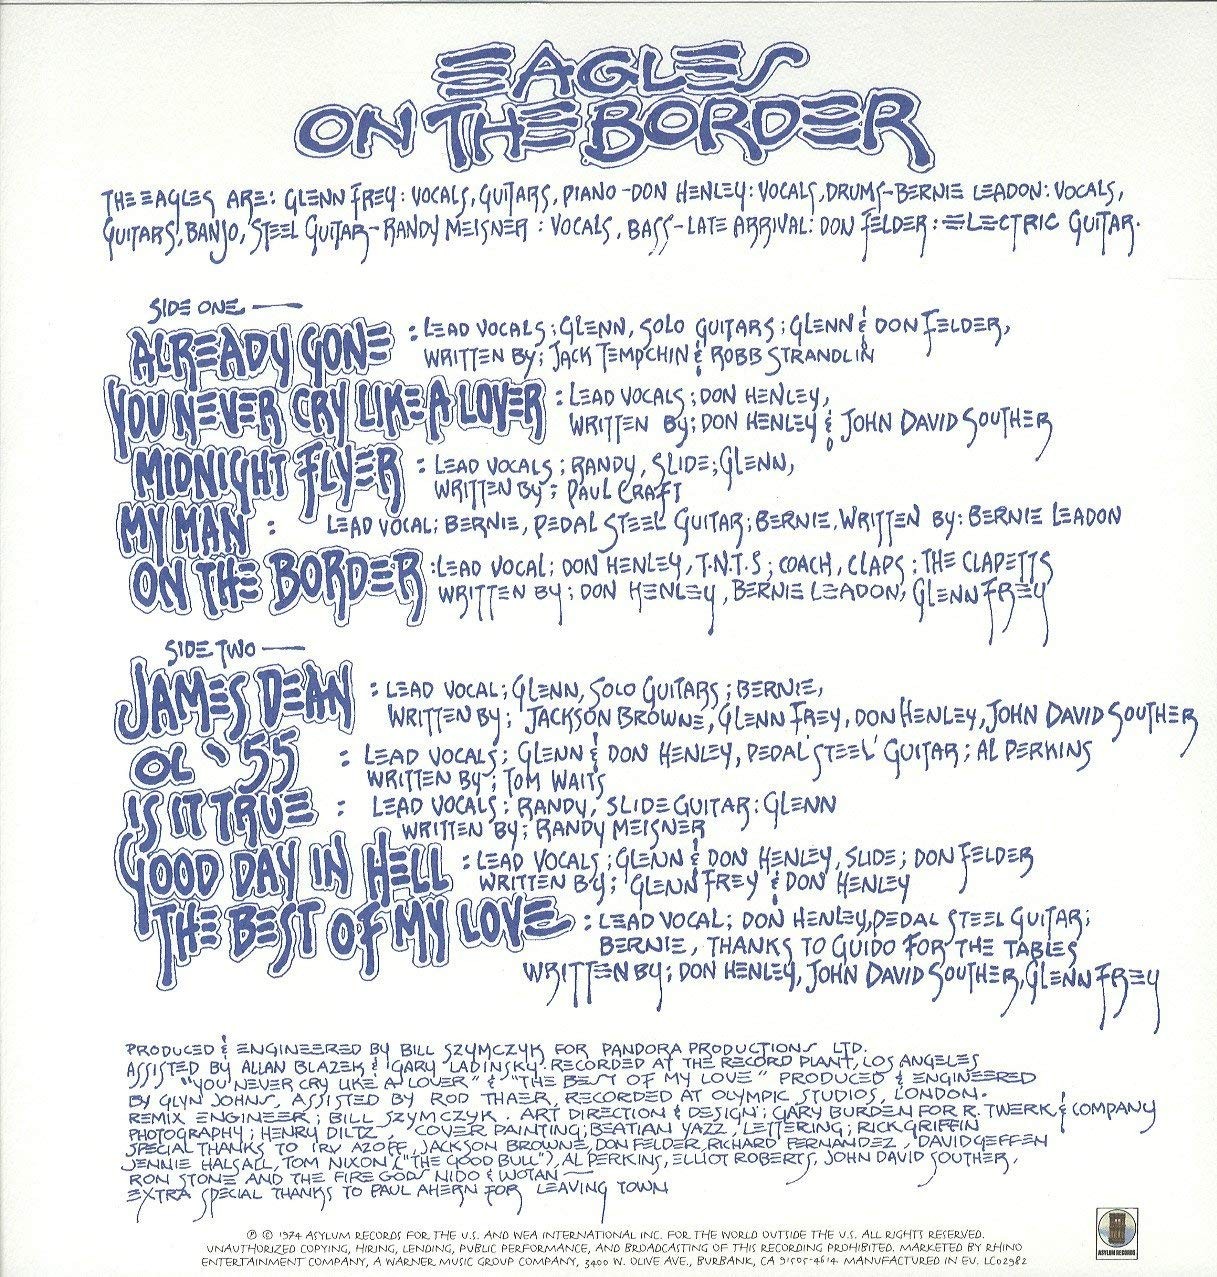 EAGLES
ON THE BORDER
THE EAGLES ARE: GLENN FREY: VOCALS, GUITARS, PIANO - DON HENLEY: VOCALS, DRUMS - BERNIE LEADON: VOCALS,
GUITARS, BANJO, STEEL GUITAR - RANDY MEISNER: VOCALS, BASS - LATE ARRIVAL: DON FELDER: ELECTRIC GUITAR.
SIDE ONE —
ALREADY GONE : LEAD VOCALS; GLENN, SOLO GUITARS; GLENN & DON FELDER,
WRITTEN BY; JACK TEMPCHIN & ROBB STRANDLIN
YOU NEVER CRY LIKE A LOVER : LEAD VOCALS; DON HENLEY,
WRITTEN BY; DON HENLEY & JOHN DAVID SOUTHER
MIDNIGHT FLYER : LEAD VOCALS; RANDY, SLIDE; GLENN,
WRITTEN BY; PAUL CRAFT
MY MAN : LEAD VOCAL; BERNIE, PEDAL STEEL GUITAR; BERNIE, WRITTEN BY: BERNIE LEADON
ON THE BORDER : LEAD VOCAL; DON HENLEY, T.N.T.S; COACH, CLAPS: THE CLAPETTS
WRITTEN BY; DON HENLEY, BERNIE LEADON, GLENN FREY
SIDE TWO —
JAMES DEAN : LEAD VOCAL; GLENN, SOLO GUITARS; BERNIE,
WRITTEN BY; JACKSON BROWNE, GLENN FREY, DON HENLEY, JOHN DAVID SOUTHER
OL '55 : LEAD VOCALS; GLENN & DON HENLEY, PEDAL STEEL GUITAR; AL PERKINS
WRITTEN BY; TOM WAITS
IS IT TRUE : LEAD VOCALS; RANDY, SLIDE GUITAR: GLENN
WRITTEN BY; RANDY MEISNER
GOOD DAY IN HELL : LEAD VOCALS; GLENN & DON HENLEY, SLIDE; DON FELDER
WRITTEN BY; GLENN FREY & DON HENLEY
THE BEST OF MY LOVE : LEAD VOCAL; DON HENLEY, PEDAL STEEL GUITAR;
BERNIE, THANKS TO GUIDO FOR THE TABLES
WRITTEN BY; DON HENLEY, JOHN DAVID SOUTHER, GLENN FREY
PRODUCED & ENGINEERED BY BILL SZYMCZYK FOR PANDORA PRODUCTIONS LTD.
ASSISTED BY ALLAN BLAZEK & GARY LADINSKY. RECORDED AT THE RECORD PLANT, LOS ANGELES
"YOU NEVER CRY LIKE A LOVER" & "THE BEST OF MY LOVE" PRODUCED & ENGINEERED
BY GLYN JOHNS, ASSISTED BY ROD THAER, RECORDED AT OLYMPIC STUDIOS, LONDON.
REMIX ENGINEER; BILL SZYMCZYK. ART DIRECTION & DESIGN; GARY BURDEN FOR R. TWERK & COMPANY
PHOTOGRAPHY; HENRY DILTZ, COVER PAINTING; BEATIAN YAZZ, LETTERING; RICK GRIFFIN
SPECIAL THANKS TO IRV AZOFF, JACKSON BROWNE, DON FELDER, RICHARD FERNANDEZ, DAVID GEFFEN
JENNIE HALSALL, TOM NIXON ("THE GOOD BULL"), AL PERKINS, ELLIOT ROBERTS, JOHN DAVID SOUTHER,
RON STONE AND THE FIRE GODS NIDO & WOTAN —
EXTRA SPECIAL THANKS TO PAUL AHERN FOR LEAVING TOWN
℗ © 1974 ASYLUM RECORDS FOR THE U.S. AND WEA INTERNATIONAL INC. FOR THE WORLD OUTSIDE THE U.S. ALL RIGHTS RESERVED.
UNAUTHORIZED COPYING, HIRING, LENDING, PUBLIC PERFORMANCE, AND BROADCASTING OF THIS RECORDING PROHIBITED. MARKETED BY RHINO
ENTERTAINMENT COMPANY, A WARNER MUSIC GROUP COMPANY, 3400 W. OLIVE AVE., BURBANK, CA 91505-4614 MANUFACTURED IN EU. LC02982
ASYLUM RECORDS